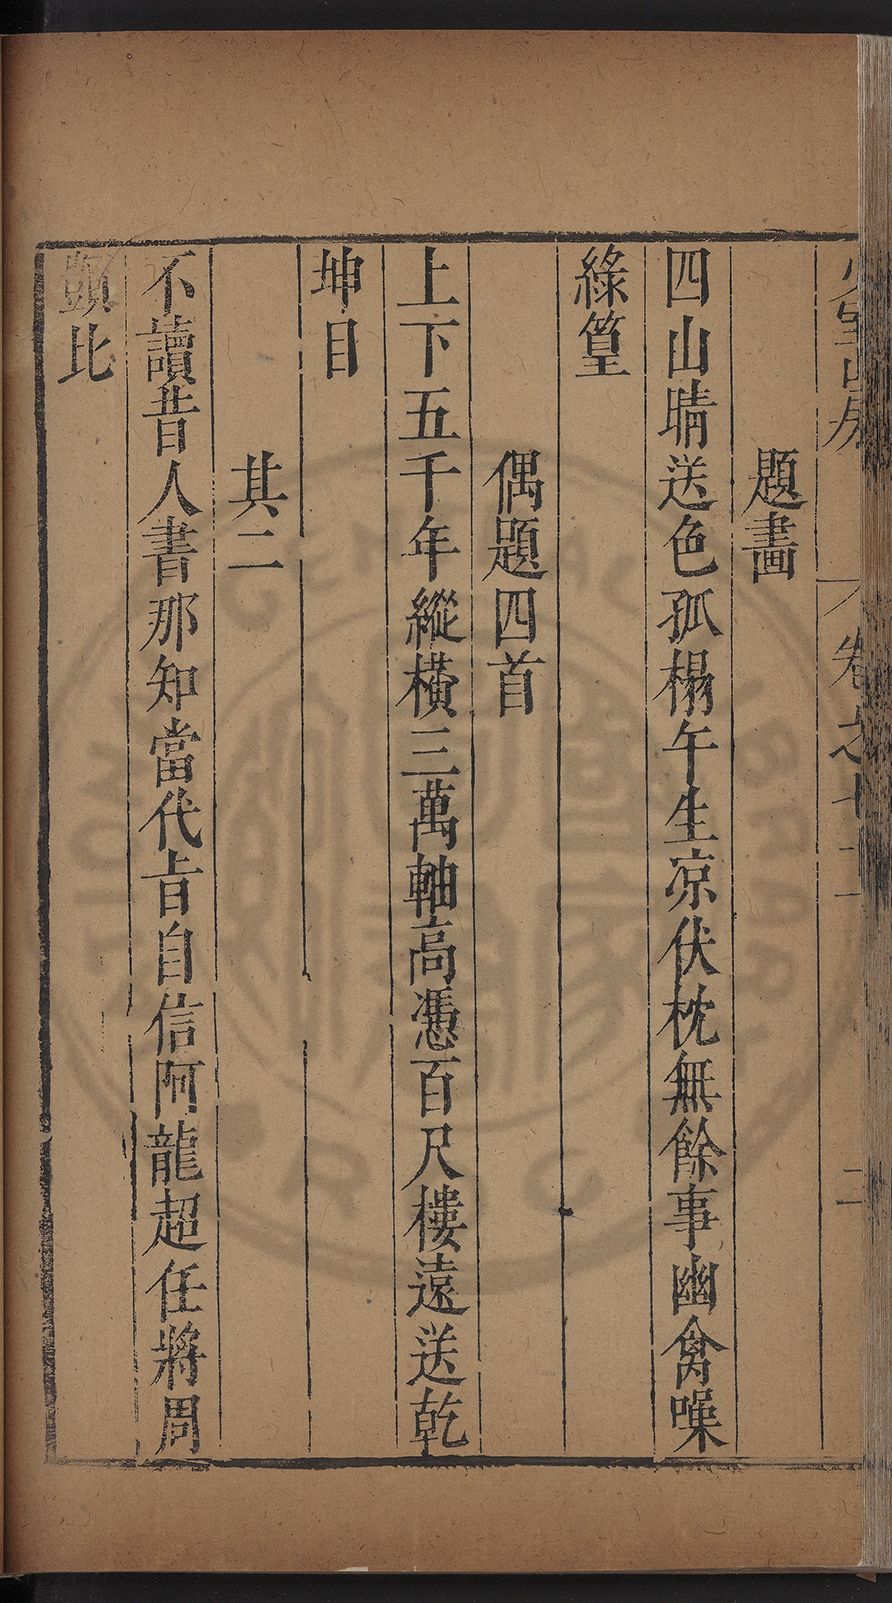 少室山房 卷之七十二 二
題畵
四山晴送色孤榻午生凉伏枕無餘事幽禽噪
綠篁
偶題四首
上下五千年縱橫三萬軸高憑百尺樓遠送乾
坤目
其二
不讀昔人書那知當代旨自信阿龍超任將周
顗比